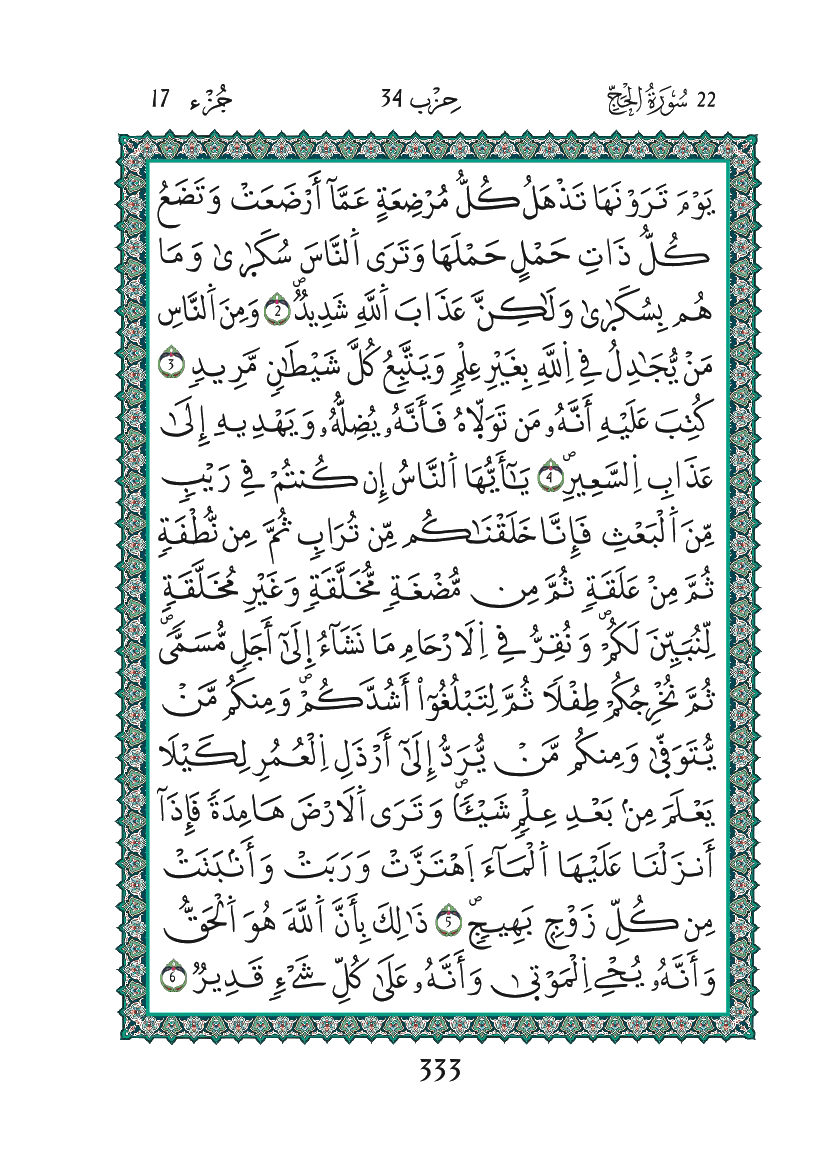 22 سُورَةُ الْحَجِّ حِزْب 34 جُزْء 17
يَوْمَ تَرَوْنَهَا تَذْهَلُ كُلُّ مُرْضِعَةٍ عَمَّآ أَرْضَعَتْ وَتَضَعُ
كُلُّ ذَاتِ حَمْلٍ حَمْلَهَا وَتَرَى اَلنَّاسَ سُكَٰرٜىٰ وَمَا
هُم بِسُكَٰرٜىٰ وَلَٰكِنَّ عَذَابَ اَللَّهِ شَدِيدٌۖ 2 وَمِنَ اَلنَّاسِ
مَنْ يُّجَٰدِلُ فِے اِللَّهِ بِغَيْرِ عِلْمٍ وَيَتَّبِعُ كُلَّ شَيْطَٰنٍ مَّرِيدٍ 3
كُتِبَ عَلَيْهِ أَنَّهُۥ مَن تَوَلَّاهُ فَأَنَّهُۥ يُضِلُّهُۥ وَيَهْدِيهِ إِلَىٰ
عَذَابِ اِلسَّعِيرِۖ 4 يَٰٓأَيُّهَا اَلنَّاسُ إِن كُنتُمْ فِے رَيْبٍ
مِّنَ اَلْبَعْثِ فَإِنَّا خَلَقْنَٰكُم مِّن تُرَابٍ ثُمَّ مِن نُّطْفَةٍ
ثُمَّ مِنْ عَلَقَةٍ ثُمَّ مِن مُّضْغَةٍ مُّخَلَّقَةٍ وَغَيْرِ مُخَلَّقَةٍ
لِّنُبَيِّنَ لَكُمْۖ وَنُقِرُّ فِے اِلَارْحَامِ مَا نَشَآءُ إِلَىٰٓ أَجَلٍ مُّسَمّىٗۖ
ثُمَّ نُخْرِجُكُمْ طِفْلاٗ ثُمَّ لِتَبْلُغُوٓاْ أَشُدَّكُمْۖ وَمِنكُم مَّنْ
يُّتَوَفّٜىٰ وَمِنكُم مَّنْ يُّرَدُّ إِلَىٰٓ أَرْذَلِ اِلْعُمُرِ لِكَيْلَا
يَعْلَمَ مِنۢ بَعْدِ عِلْمٍ شَيْـٔاٗۖ وَتَرَى اَلَارْضَ هَامِدَةٗ فَإِذَآ
أَنزَلْنَا عَلَيْهَا اَلْمَآءَ اَهْتَزَّتْ وَرَبَتْ وَأَنۢبَتَتْ
مِن كُلِّ زَوْجٍ بَهِيجٍۖ 5 ذَٰلِكَ بِأَنَّ اَللَّهَ هُوَ اَلْحَقُّ
وَأَنَّهُۥ يُحْيِ اِلْمَوْتٜىٰ وَأَنَّهُۥ عَلَىٰ كُلِّ شَےْءٍ قَدِيرٌ 6
333